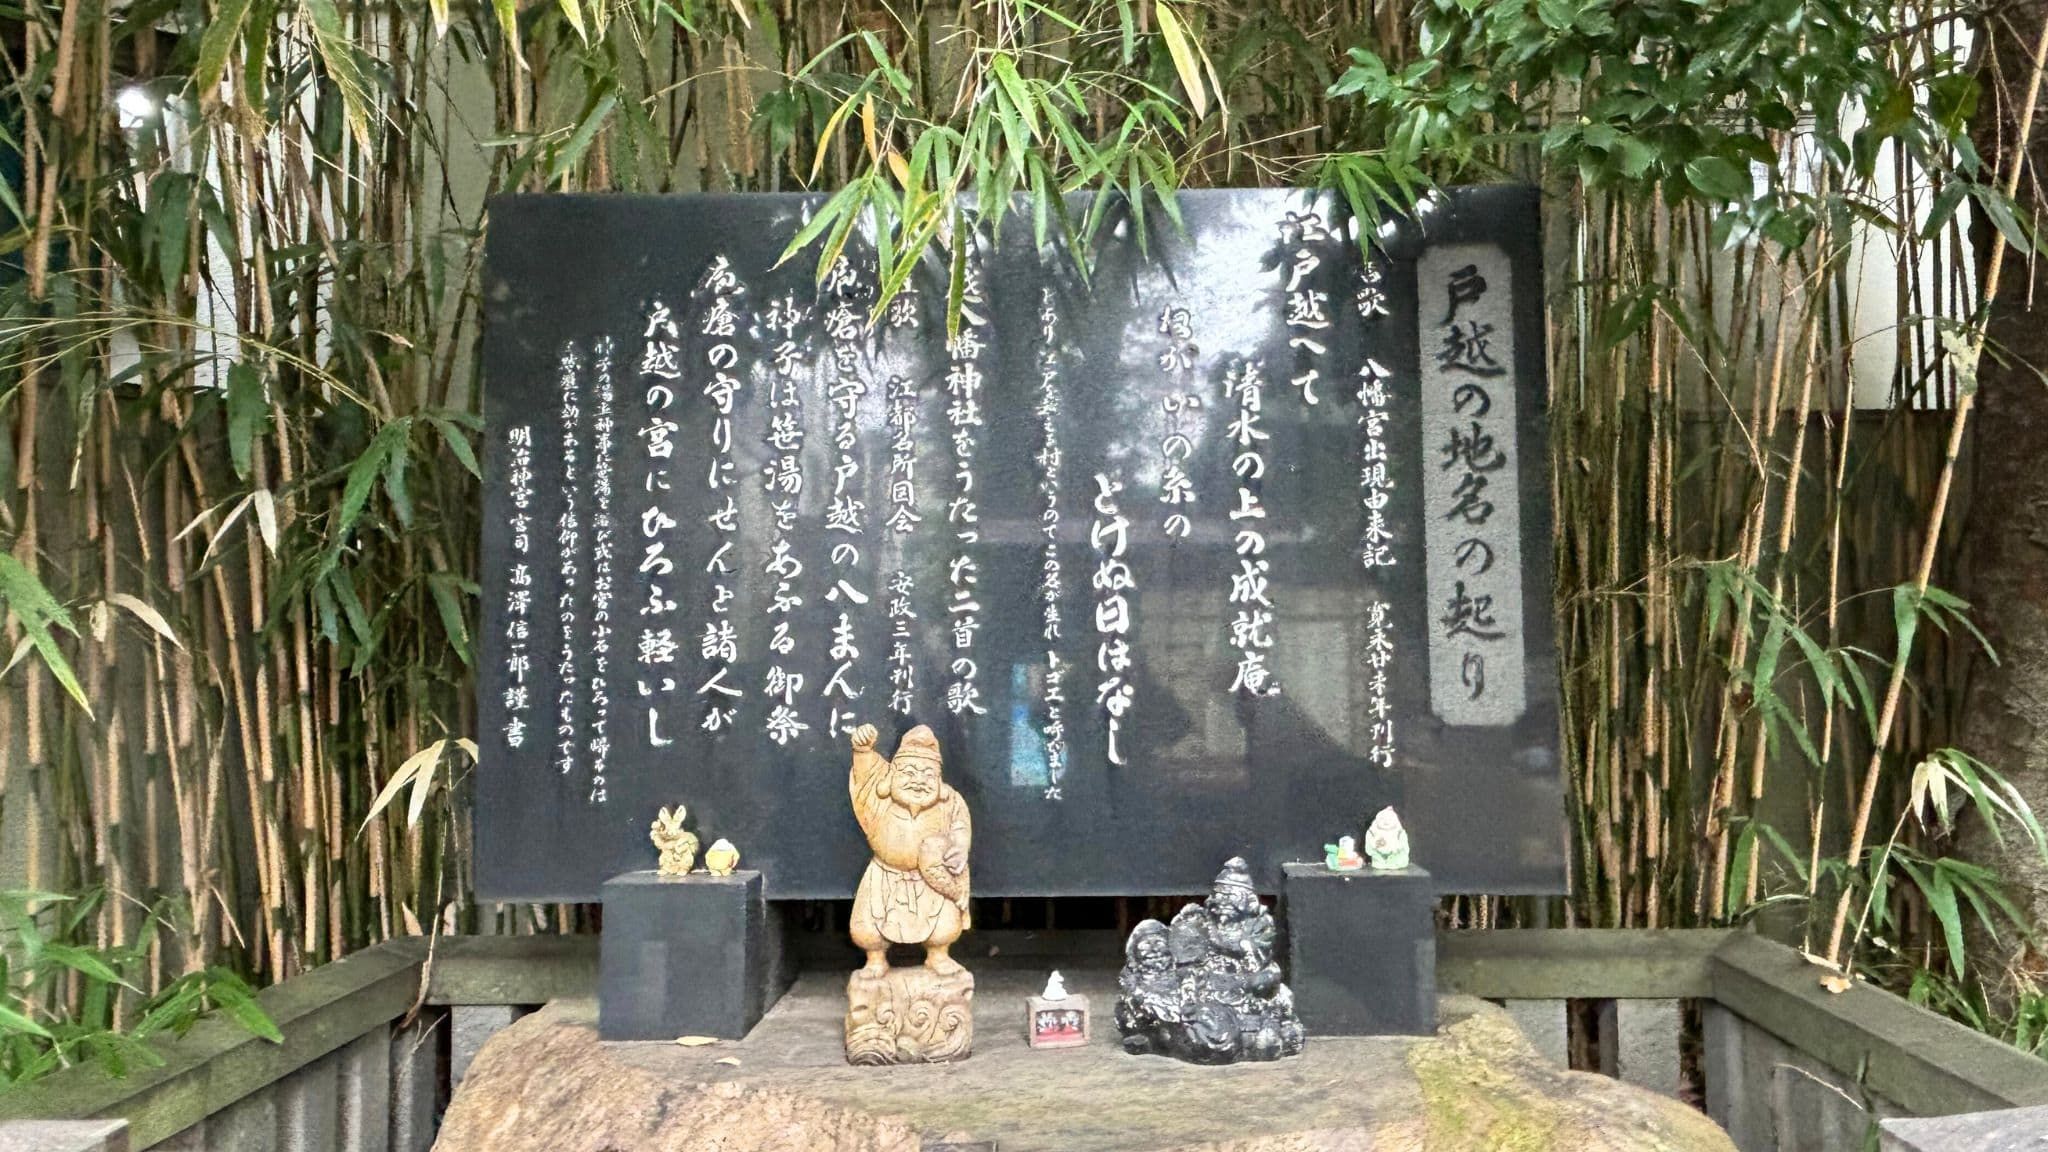 戸越の地名の起り
古歌 八幡宮出現由来記 寛永廿未年刊行
江戸越へて
清水の上の成就庵
ねがいの糸の
とけぬ日はなし
とあり 江戸を越える村というのでこの名が生れ トゴエと呼びました
越八幡神社をうたった二首の歌
歌 江都名所図会 安政三年刊行
疱瘡を守る戸越の八まんに
神子は笹湯をあふる御祭
疱瘡の守りにせんと諸人が
戸越の宮にひろふ軽いし
神子の湯立神事に笹湯を浴び或はお宮の小石をひろって帰るのは
疱瘡に効があるという信仰があったのをうたったものです
明治神宮宮司 高澤信一郎 謹書